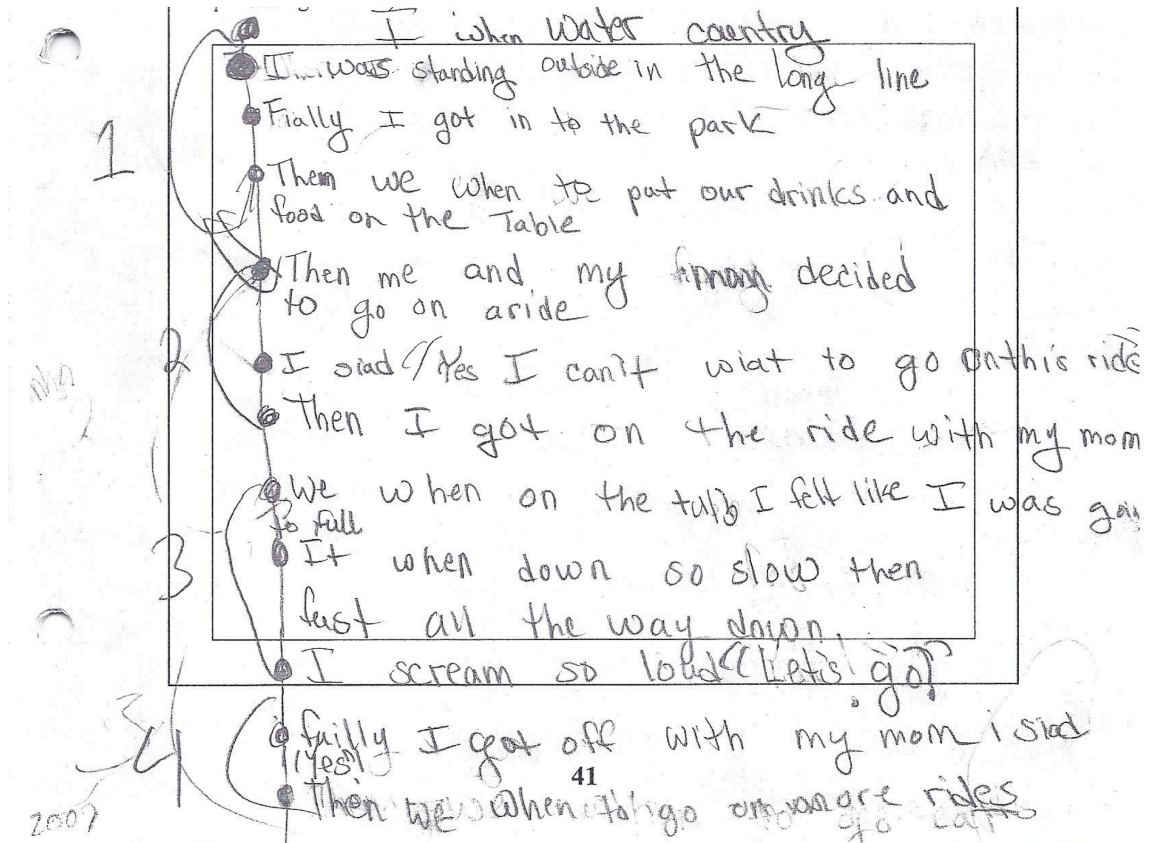 I when water caentry
I was standing outside in the long line
Fially I got in to the park
1
Then we when to put our drinks and
food on the Table
Then me and my decided
to go on aride
2
I siad "Yes I can't wiat to go onthis ride"
Then I got on the ride with my mom
We when on the I felt like I was
to fall
3
It when down so slow then
fast all the way down,
I scream so loud "Let's go"
failly I got off with my mom i siad
"Yes"
4
41
Then we when to go on more rides
2007